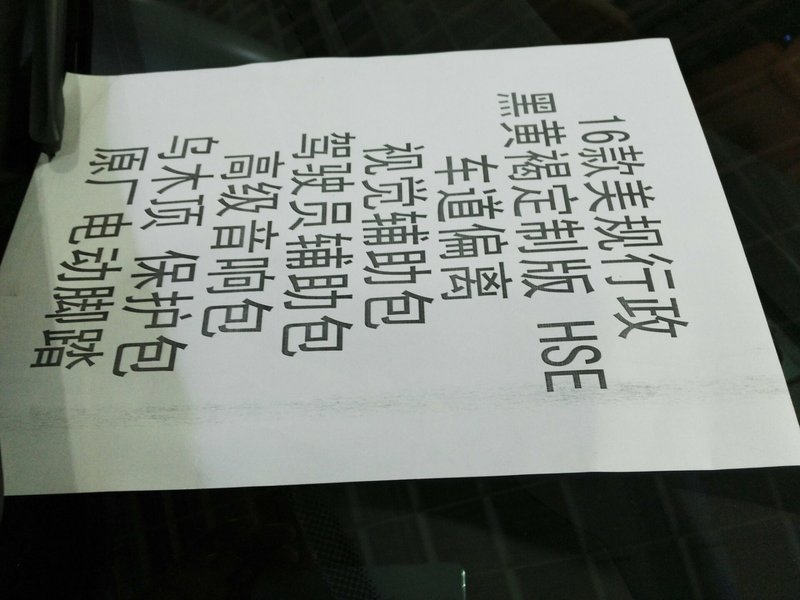 16款美规行政
黑黄褐定制版 HSE
车道偏离
视觉辅助包
驾驶员辅助包
高级音响包
乌木顶 保护包
原厂 电动脚踏